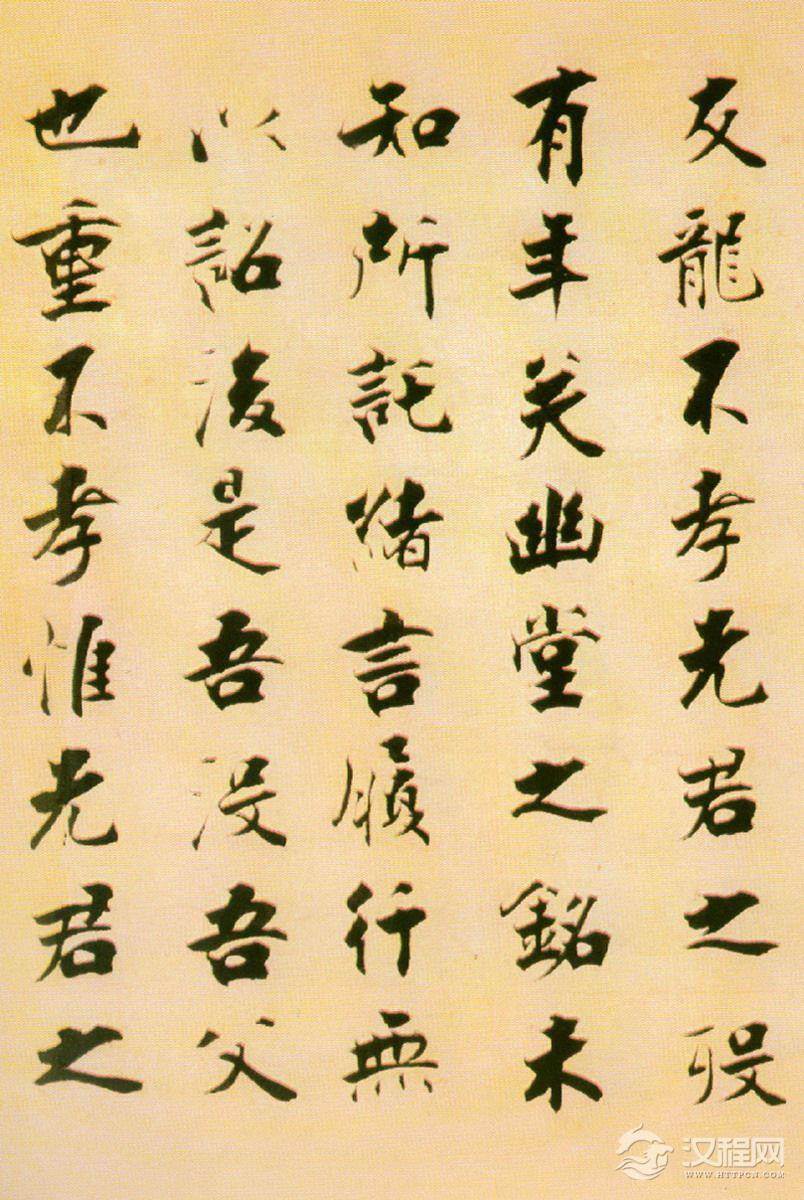 友龍不孝先君之歿
有年矣幽堂之銘未
知所託緒言履行無
以詔後是吾没吾父
也重不孝惟先君之
汉程网
WWW.HTTPCN.COM